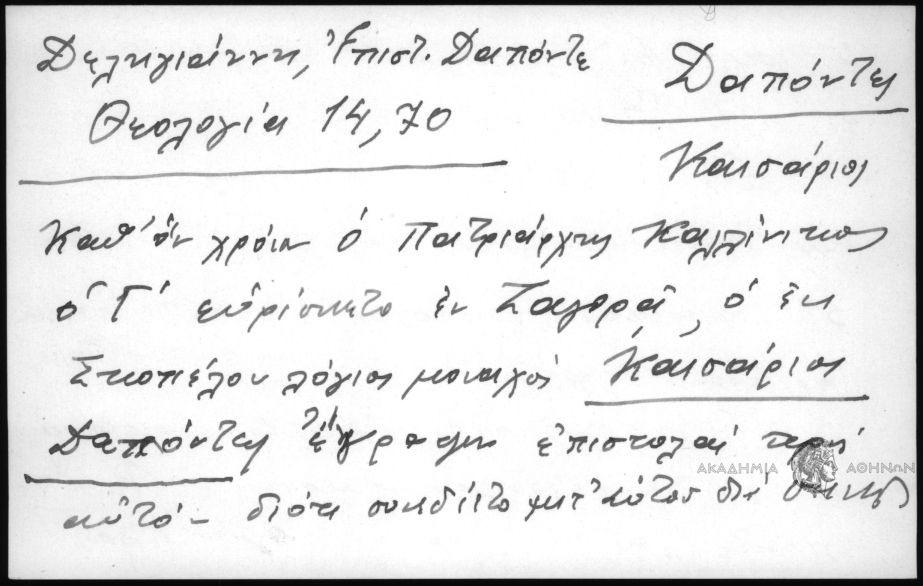 Δεληγιάννη, Ἐπιστ. Δαπόντε
Θεολογία 14,70
Δαπόντες
Καισάριος
Καθ' ὃν χρόνον ὁ Πατριάρχης Καλλίνικος
ὁ Γ' εὑρίσκετο ἐν Ζαγορᾷ, ὁ ἐκ
Σκοπέλου λόγιος μοναχὸς Καισάριος
Δαπόντες ἔγραφεν ἐπιστολὰς πρὸς
αὐτὸν διότι συνεδέετο μετ' αὐτοῦ διὰ
ΑΚΑΔΗΜΙΑ ΑΘΗΝΩΝ